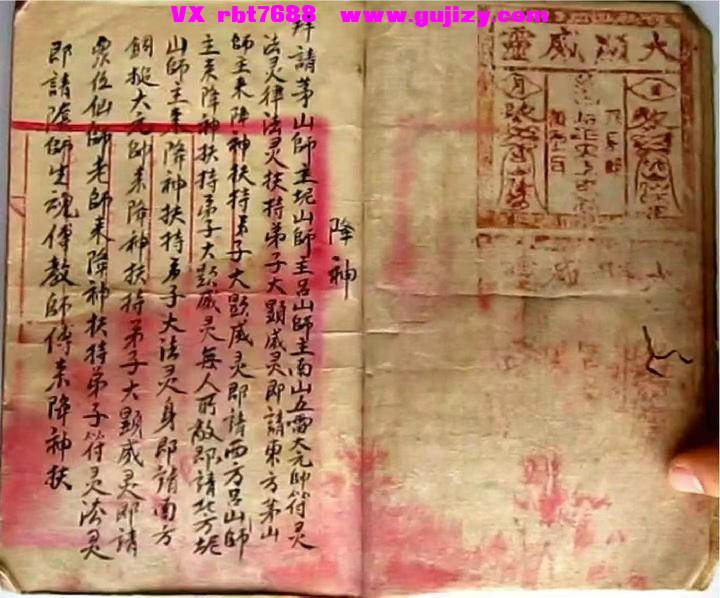 VX rbt7688 www.gujizy.com
大顯威靈
日
月
降神
拜請茅山師主坭山師主吕山師主南山五雷大元帥符灵
法灵律法灵扶持弟子大顯威灵即請東方茅山
師主来降神扶持弟子大顯威灵即請西方吕山師
主来降神扶持弟子大顯威灵每人所敵即請北方坭
山師主来降神扶持弟子大法灵身即請南方
銅搥大元帥来降神扶持弟子大顯威灵即請
眾位仙師老師来降神扶持弟子符灵法灵
即請陰師生魂傳教師傅来降神扶